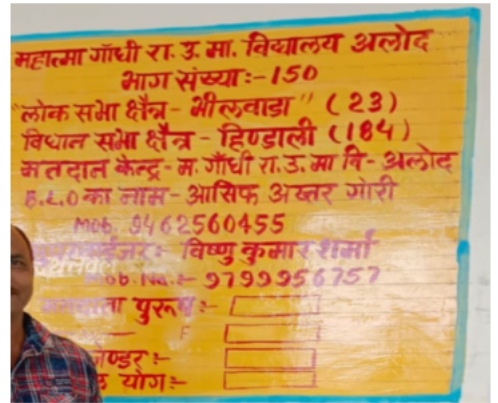 महात्मा गाँधी रा. उ. मा. विद्यालय अलोद
भाग संख्या:-150
"लोक सभा क्षैत्र - भीलवाडा" (23)
विधान सभा क्षैत्र - हिण्डोली (184)
मतदान केन्द्र - म. गाँधी रा. उ. मा वि- अलोद
B.L.O का नाम - आसिफ अख्तर गोरी
Mob. 9462560455
विष्णु कुमार शर्मा
Mob. No.:- 9799956757
पुरूष:-
F
योग:-